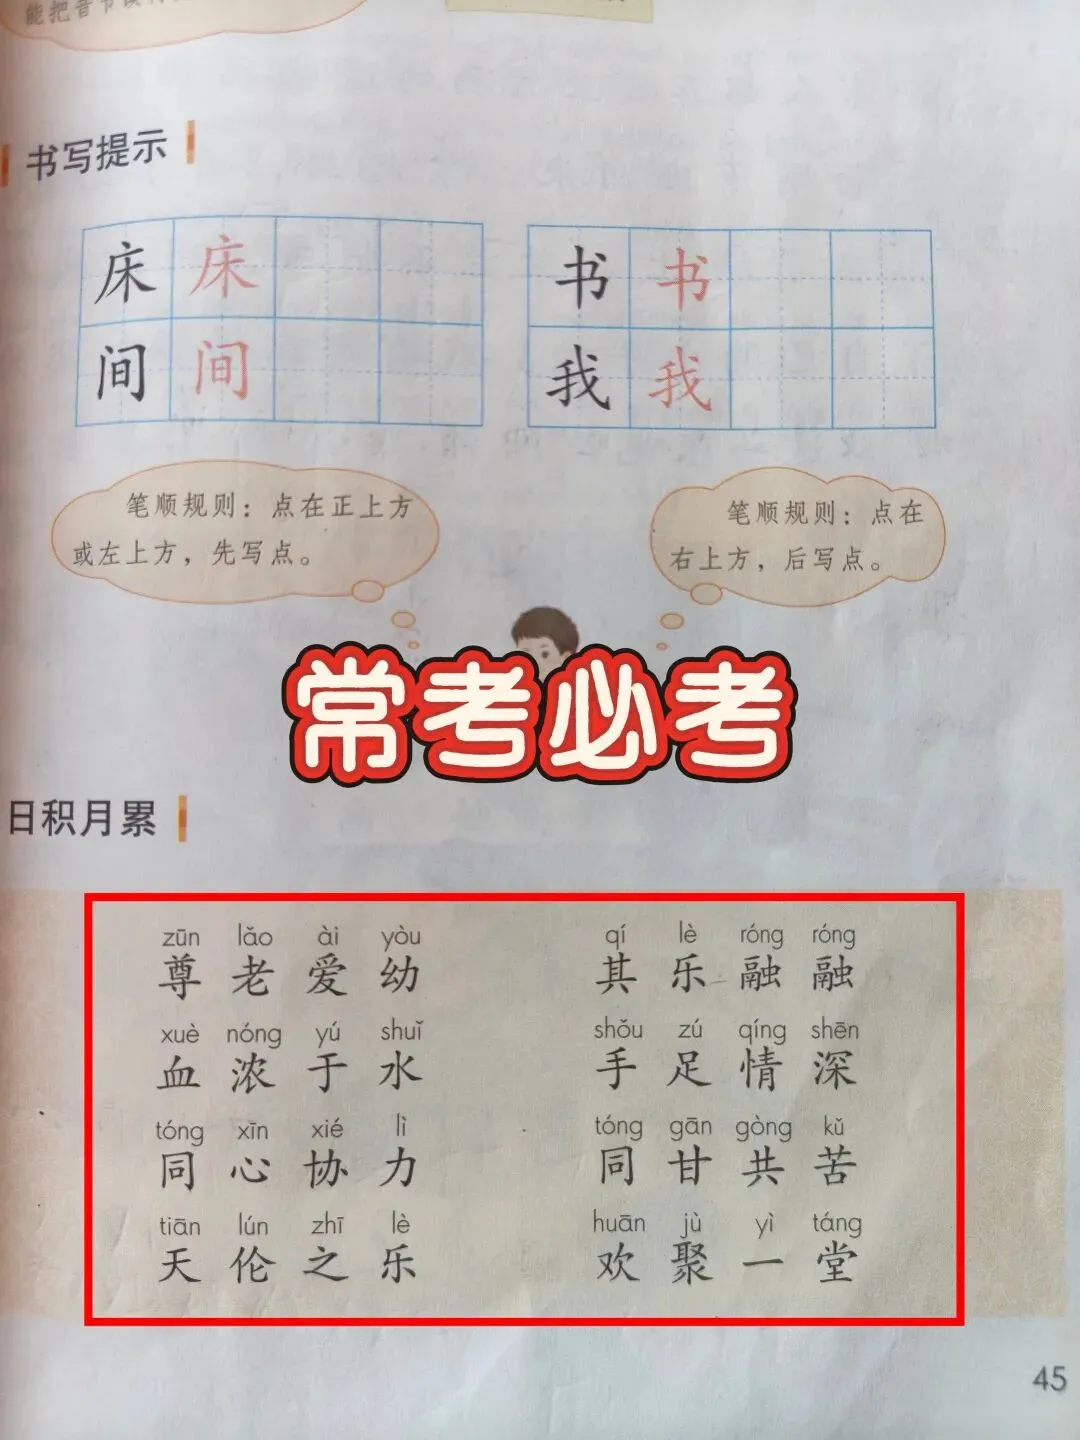 能把音节读
书写提示
床 床 书 书
间 间 我 我
笔顺规则：点在正上方
或左上方，先写点。
笔顺规则：点在
右上方，后写点。
常考必考
日积月累
zūn lǎo ài yòu qí lè róng róng
尊 老 爱 幼 其 乐 融 融
xuè nóng yú shuǐ shǒu zú qíng shēn
血 浓 于 水 手 足 情 深
tóng xīn xié lì tóng gān gòng kǔ
同 心 协 力 同 甘 共 苦
tiān lún zhī lè huān jù yì táng
天 伦 之 乐 欢 聚 一 堂
45